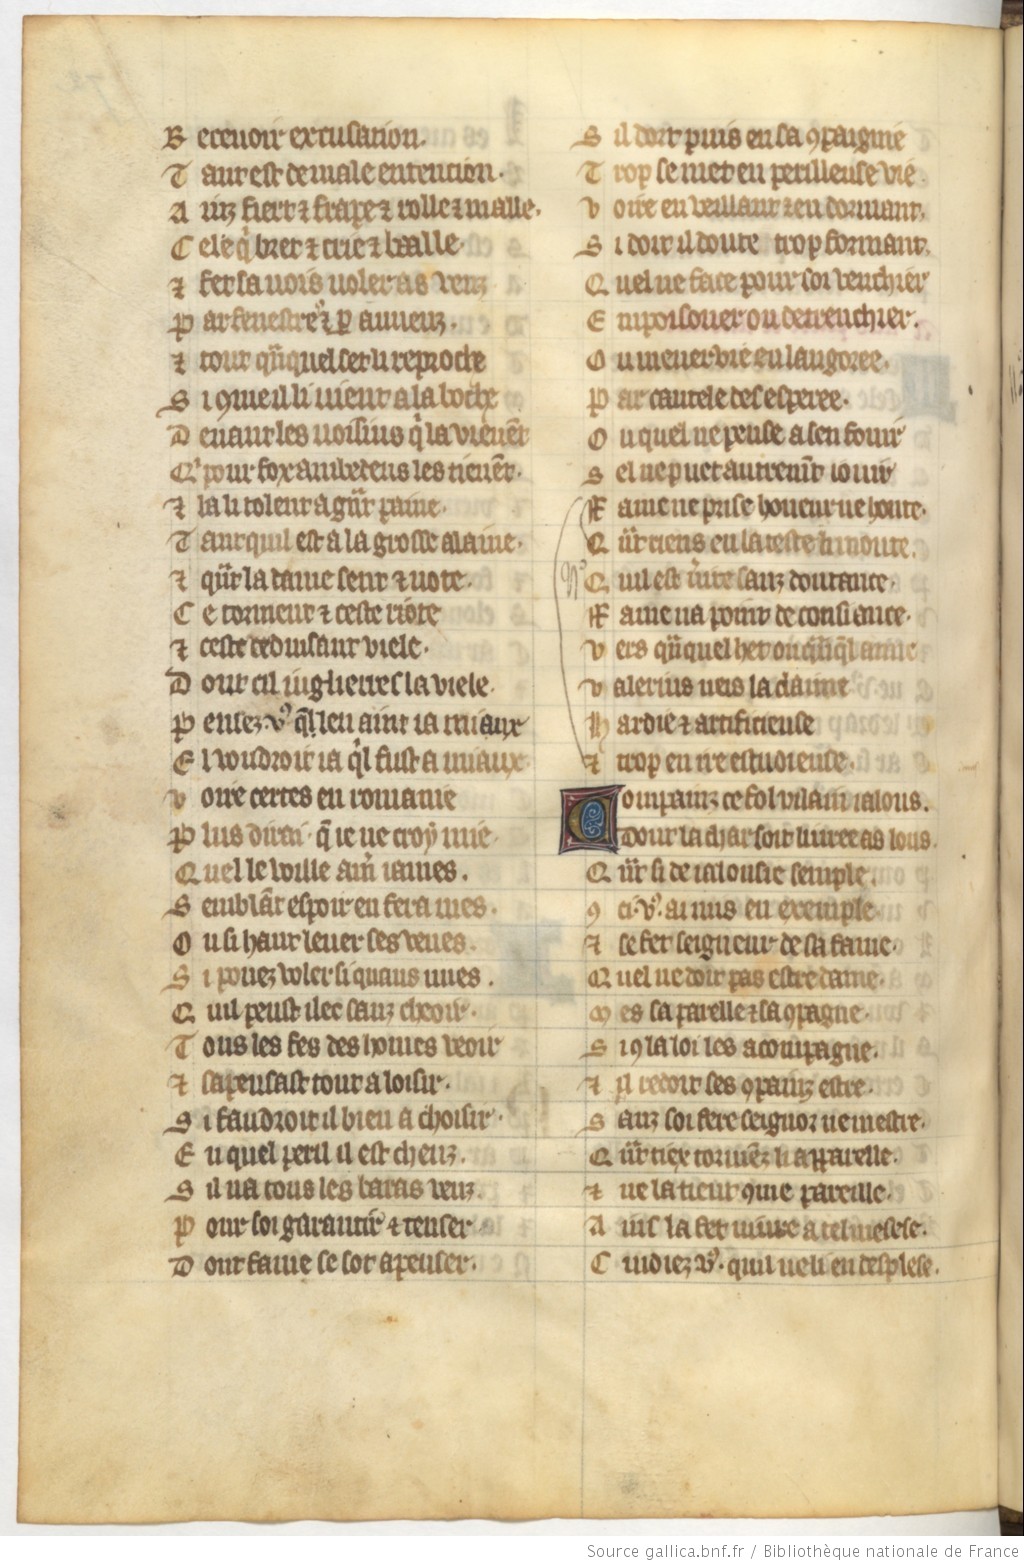 R ecevoir excusation.
T ant est de male entencion.
A inz fiert ⁊ frape ⁊ rolle ⁊ maille.
C ele q̓ bret ⁊ crie ⁊ baalle.
⁊ fet sa vois voler as venz
P ar fenestres ⁊ p̱ auvenz.
⁊ tout qn̄quel set li reproche
S i ꝯme il li vient a la boche
D evant les voisins q̓ la vienēt
Q̓ pour fox ambedeus les tienēt.
⁊ la li tolent a gn̄t paine.
T ant quil est a la grosse alaine.
⁊ qn̄t la dame sent ⁊ note.
C e torment ⁊ ceste riote
⁊ ceste deduisant viele.
D ont cil iuglierres la viele.
P ensez vꝰ q̓l len aint ia miaux
E l voudroit ia q̓l fust a miaux
V oire certes en romanie
P lus dirai. q̄ ie ne croy mie.
Q uel le voille am̓ iames.
S emblāt espoir en fera mes.
O u si haut lever ses veues.
S i pouez voler si quans nues.
Q uil peust ilec sanz cheoir.
T ous les fes des homes veoir
⁊ sapensast tout a loisir.
S i faudroit il bien a choisir.
E n quel peril il est cheuz.
S il na tous les baras veuz.
P our soi garantir ⁊ tenser
D ont fame se set apenser.
S il dort puis en sa ꝯpaignie
T rop se met en perilleuse vie.
V oire en veillant ⁊ en dormant.
S i doit il doute trop formant.
Q uel ne face pour soi venchier
E mpoisoner ou detrenchier.
O u mener vie enlangoree.
P ar cautele desesperee.
O u quel ne pense a sen fouir
S el ne puet autremt̄ iouir
F ame ne prise honeur ne honte.
Q n̄t riens en la teste li monte.
Q uil est v̓ite sanz doutance.
F ame na point de consience.
V ers qn̄quel het ou qn̄q̓l aime
V alerius neis la claime
H ardie ⁊ artificieuse
⁊ trop en nre estudieuse.
C ompainz ce fol vilain ialous.
Dont la char soit livree as lous.
Q n̄t si de ialousie semple.
ꝯ ci. vꝰ. ai mis en exemple.
⁊ se fet seigneur de sa fame.
Q uel ne doit pas estre dame.
M es sa parelle ⁊ sa ꝯpagne.
S i ꝯ la loi les acompagne.
⁊ il redoit ses ꝯpainz estre.
S anz soi fere seignor ne mestre.
Q n̄t tiex tormēz li apparelle.
⁊ ne la tient ꝯme pareille.
A ins la fet vivre a tel mesese.
C uidiez vꝰ. quil ne li en desplese.
Source gallica.bnf.fr / Bibliothèque nationale de France